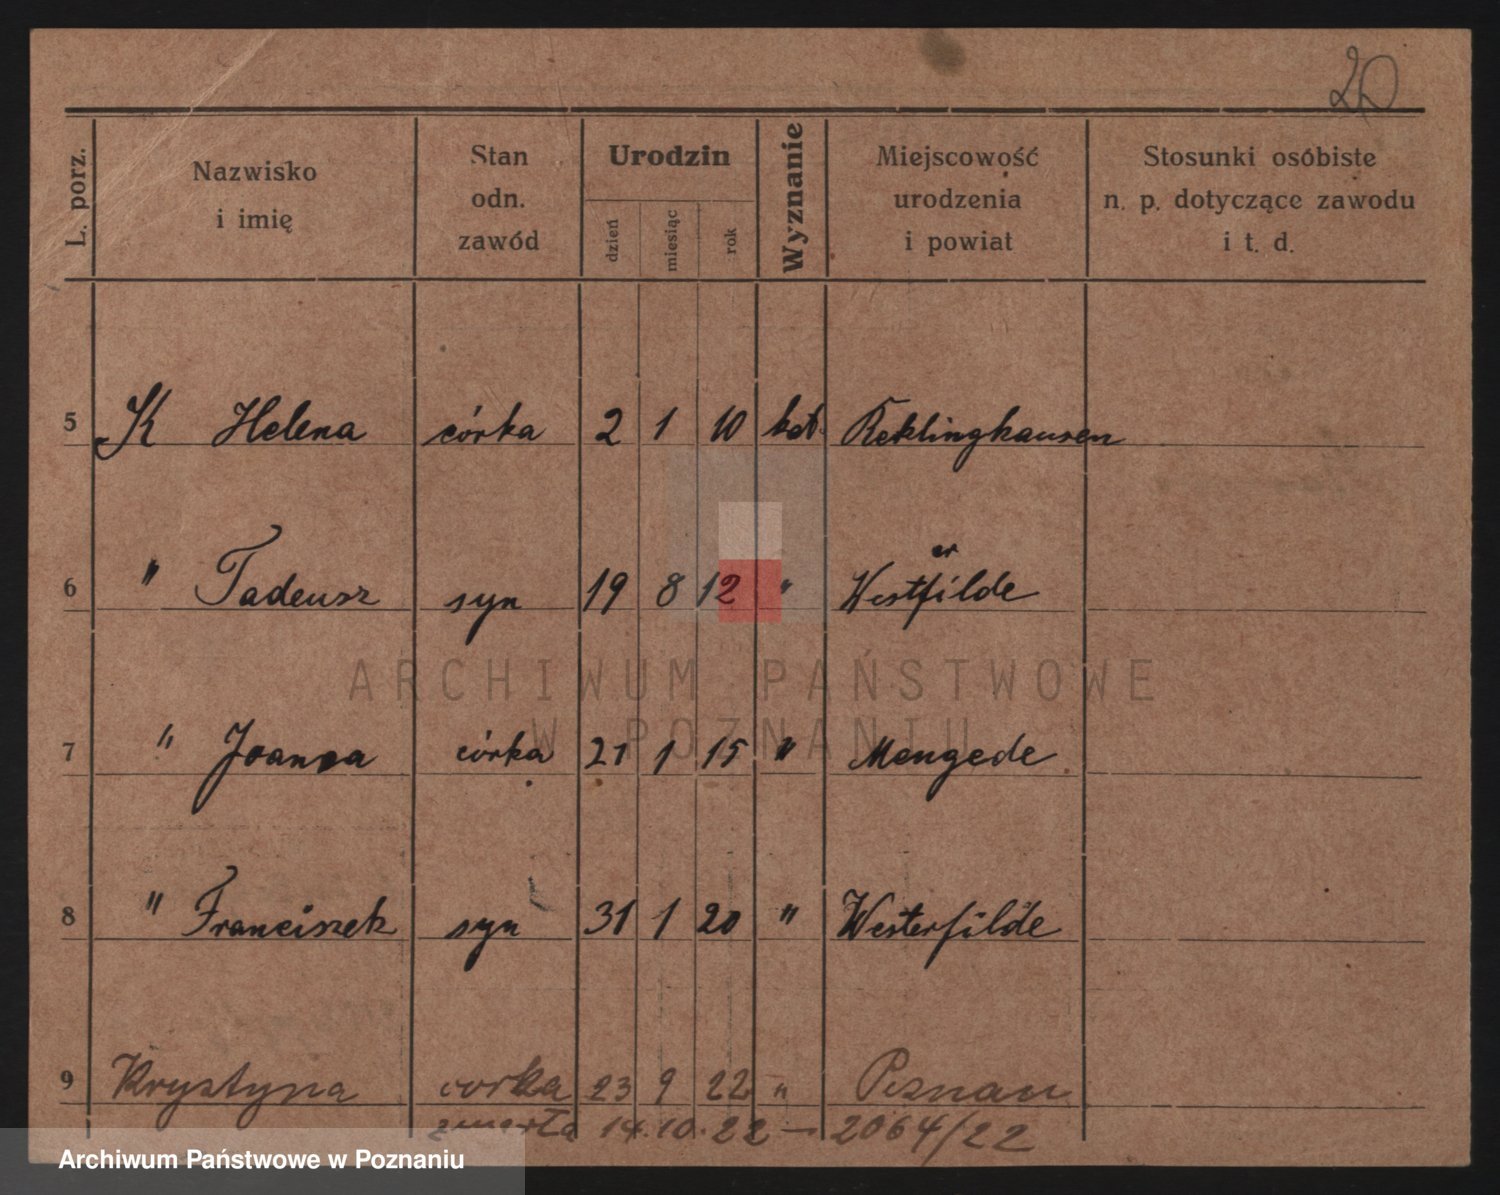 20
L. porz. Nazwisko i imię Stan odn. zawód Urodzin dzień miesiąc rok Wyznanie Miejscowość urodzenia i powiat Stosunki osóbiste n. p. dotyczące zawodu i t. d.
5 K Helena córka 2 1 10 kat. Reklinghausen
er
6 " Tadeusz syn 19 8 12 " Westfilde
ARCHIWUM PAŃSTWOWE
W POZNANIU
7 " Joanna córka 21 1 15 " Mengede
8 " Franciszek syn 31 1 20 " Westerfilde
9 Krystyna corka 23 9 22 " Poznan
zmarła 14.10.22 — 2064/22
Archiwum Państwowe w Poznaniu